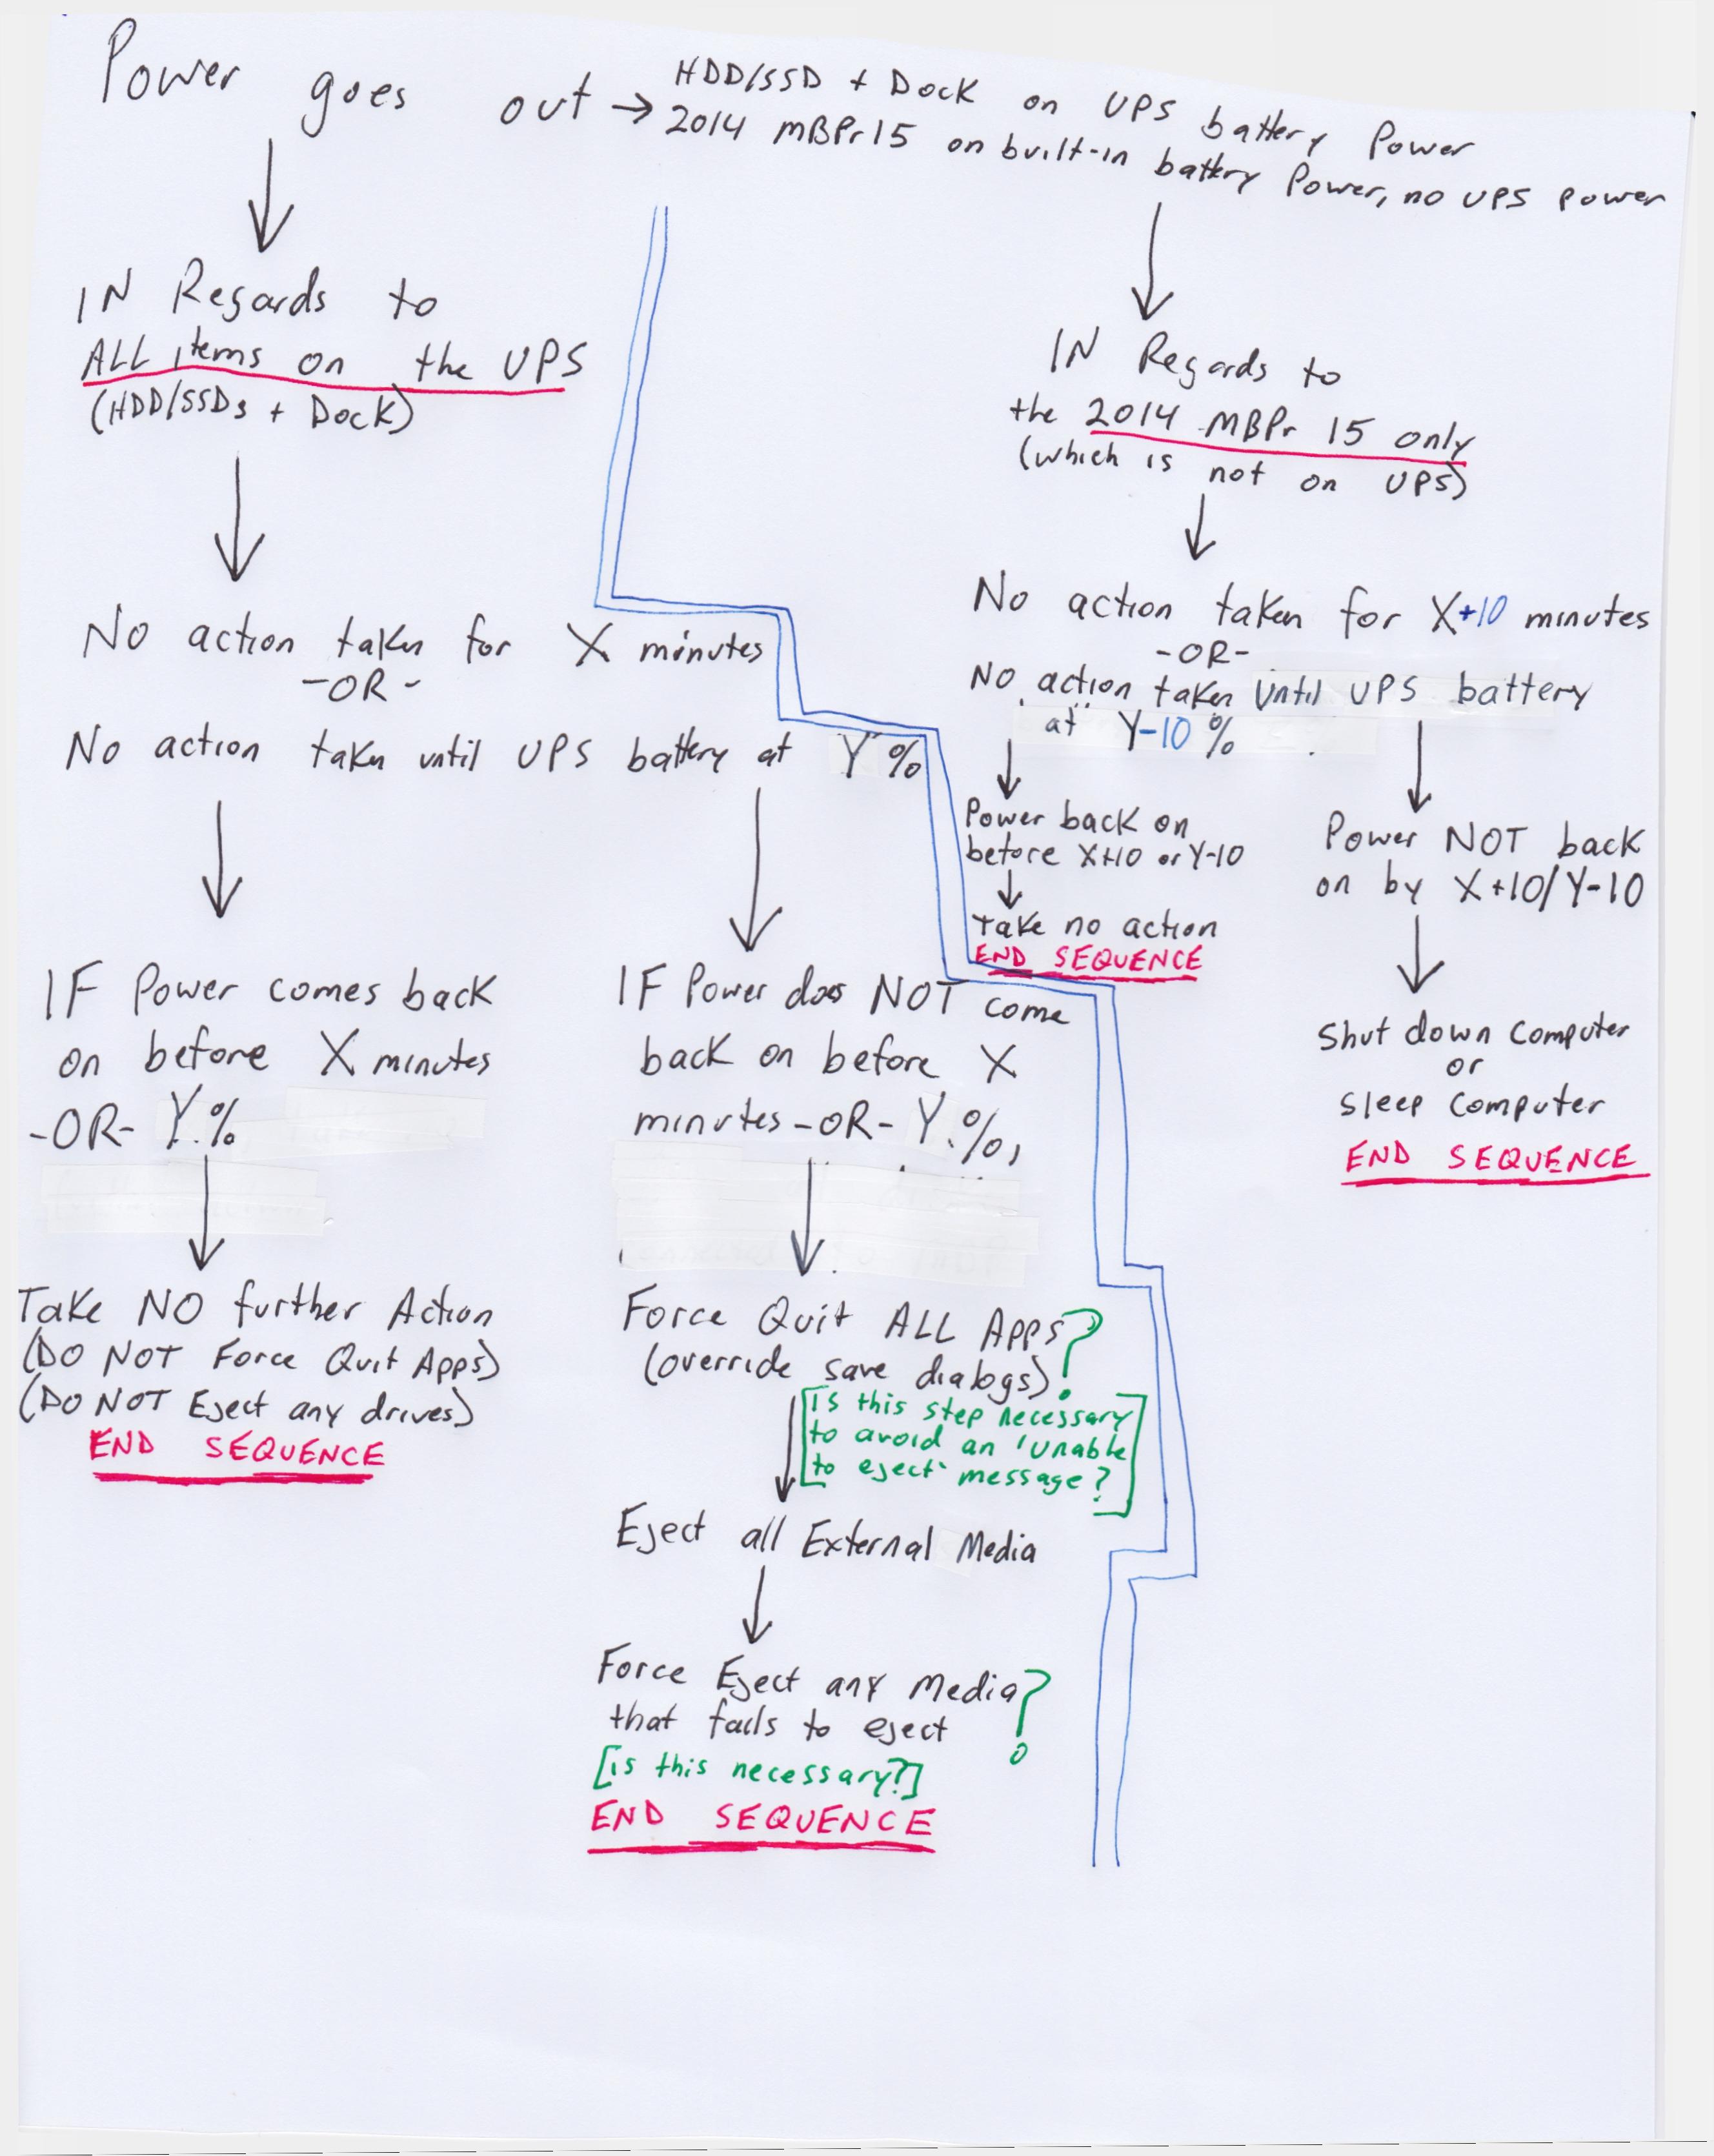 Power goes out → HDD/SSD + Dock on UPS battery Power
2014 mBPr15 on built-in battery Power, no UPS power
IN Regards to
ALL items on the UPS
(HDD/SSDs + Dock)
No action taken for X minutes
-OR-
No action taken until UPS battery at Y%
IF Power comes back
on before X minutes
-OR- Y.%
Take NO further Action
(DO NOT Force Quit Apps)
(DO NOT Eject any drives)
END SEQUENCE
IF Power does NOT come
back on before X
minutes -OR- Y.%,
Force Quit ALL Apps?
(override save dialogs)
[Is this step necessary
to avoid an 'unable
to eject' message?]
Eject all External Media
Force Eject any Media?
that fails to eject
[is this necessary?]
END SEQUENCE
IN Regards to
the 2014 MBPr 15 only
(which is not on UPS)
No action taken for X+10 minutes
-OR-
No action taken until UPS battery
at Y-10 %
Power back on
before X+10 or Y-10
Take no action
END SEQUENCE
Power NOT back
on by X+10/Y-10
Shut down computer
or
sleep computer
END SEQUENCE